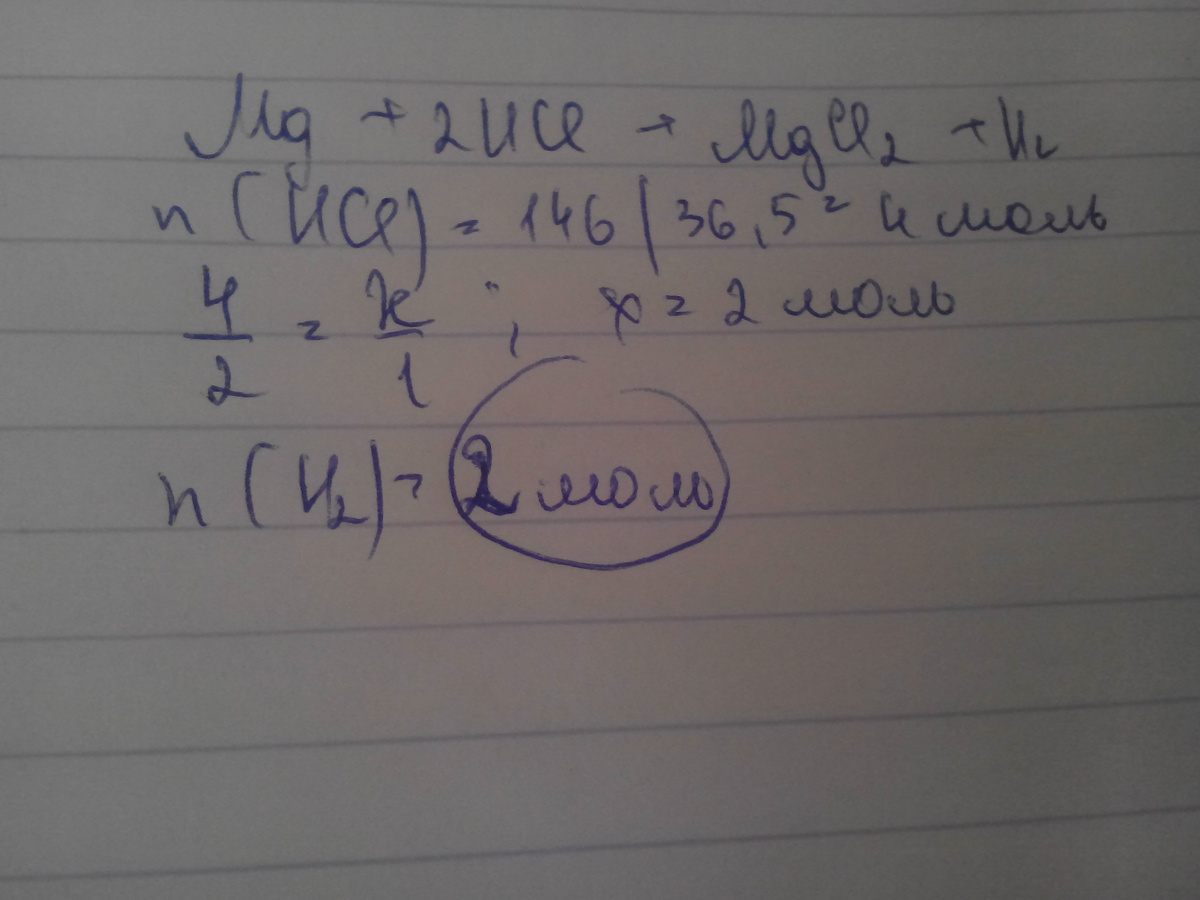 Mg + 2HCl → MgCl₂ + H₂
n (HCl) = 146 / 36,5 = 4 моль
4/2 = x/1 ; x = 2 моль
n (H₂) = 2 моль